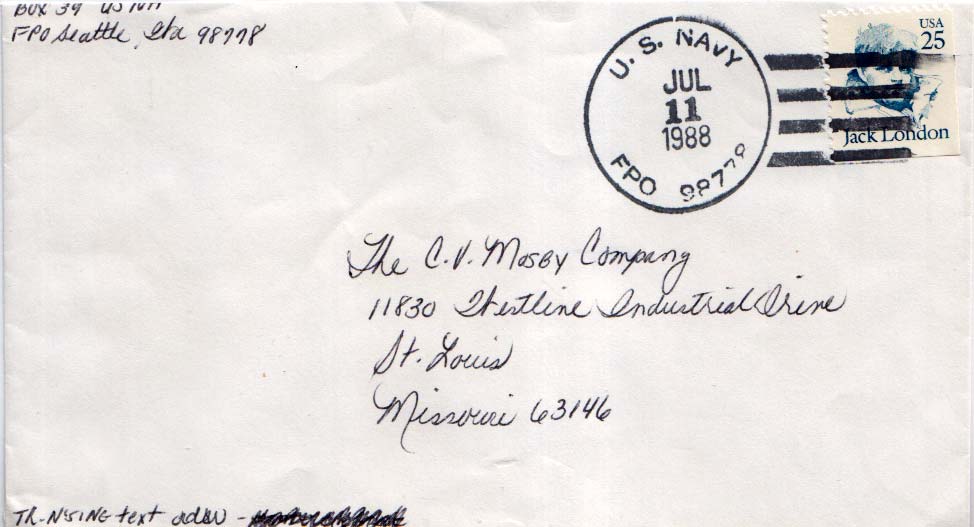 BOX 39 US NH
FPO Seattle, Wa 98778
U. S. NAVY
JUL
11
1988
FPO 98778
USA
25
Jack London
The C.V. Mosby Company
11830 Westline Industrial Drive
St. Louis
Missouri 63146
text